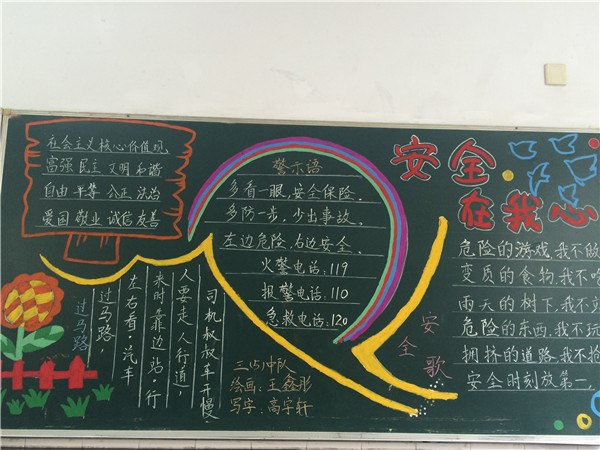 社会主义核心价值观
富强 民主 文明 和谐
自由 平等 公正 法治
爱国 敬业 诚信 友善
过马路
司机叔叔车开慢
人要走人行道,
来时靠边站·行
左右看·汽车
过马路,
警示语
多看一眼,安全保险.
多防一步,少出事故.
左边危险,右边安全.
火警电话:119
报警电话:110
急救电话:120
三(5)中队
绘画:王鑫彤
写字:高宇轩
安全
在我心
安全歌
危险的游戏我不做
变质的食物我不吃
雨天的树下我不立
危险的东西我不玩
拥挤的道路我不抢
安全时刻放第一.